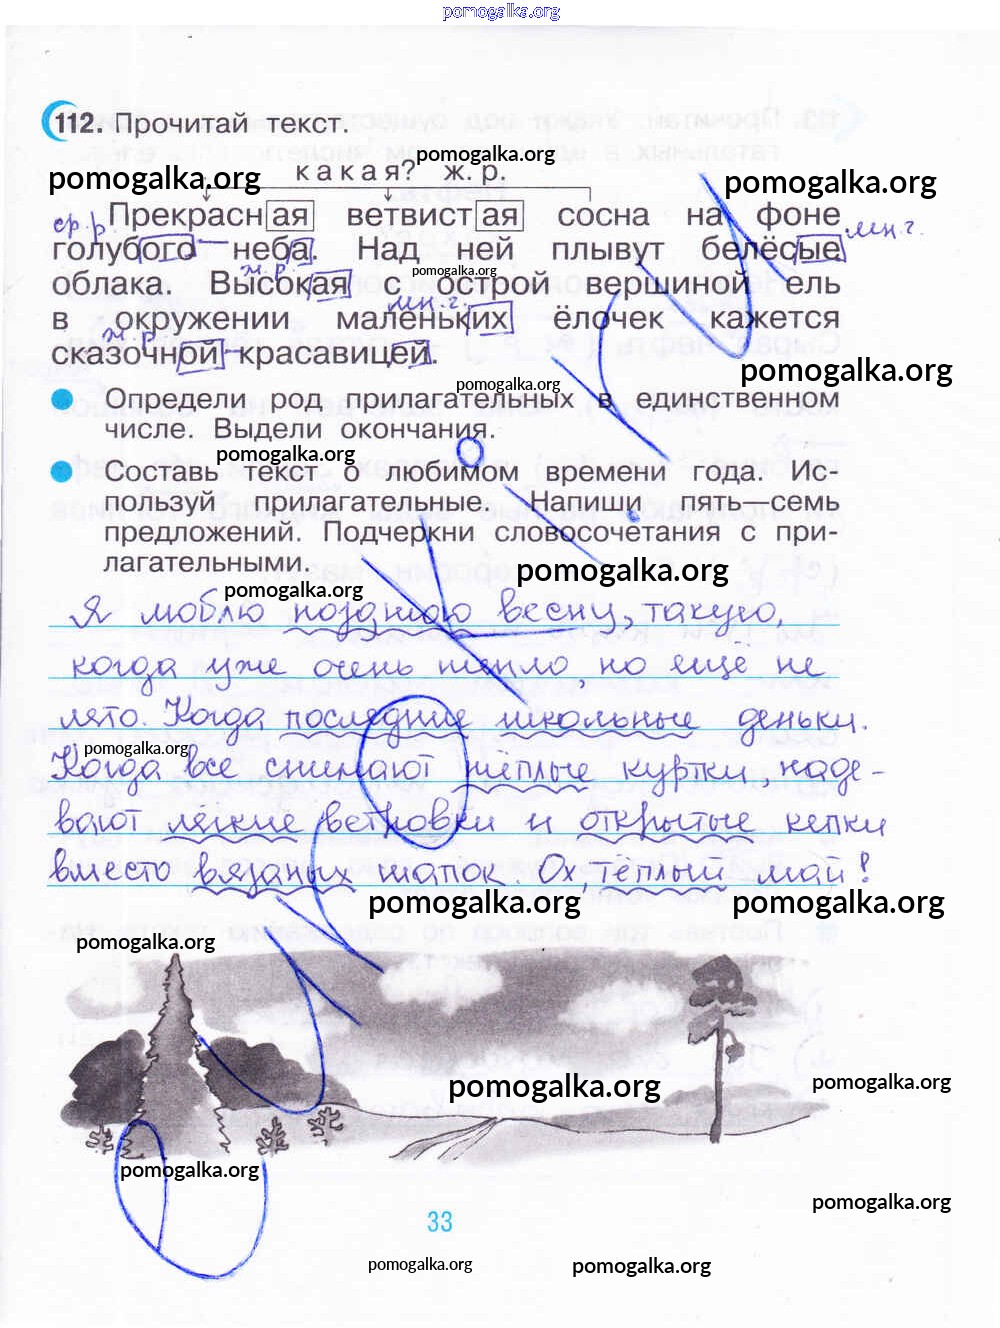 pomogalka.org
112. Прочитай текст.
какая? ж. р.
pomogalka.org
pomogalka.org
pomogalka.org
Прекрасная ветвистая сосна на фоне
ср. р.
мн. г.
голубого неба. Над ней плывут белёсые
ж. р.
pomogalka.org
облака. Высокая с острой вершиной ель
мн. г.
в окружении маленьких ёлочек кажется
ж. р.
сказочной красавицей.
pomogalka.org
pomogalka.org
Определи род прилагательных в единственном
числе. Выдели окончания.
pomogalka.org
Составь текст о любимом времени года. Ис-
пользуй прилагательные. Напиши пять—семь
предложений. Подчеркни словосочетания с при-
лагательными.
pomogalka.org
pomogalka.org
Я люблю позднюю весну, такую,
когда уже очень тепло, но еще не
лето. Когда последние школьные деньки.
pomogalka.org
Когда все снимают теплые куртки, наде-
вают легкие ветровки и открытые кепки
вместо вязаных шапок. Ох, тёплый май!
pomogalka.org
pomogalka.org
pomogalka.org
pomogalka.org
pomogalka.org
pomogalka.org
pomogalka.org
33
pomogalka.org
pomogalka.org